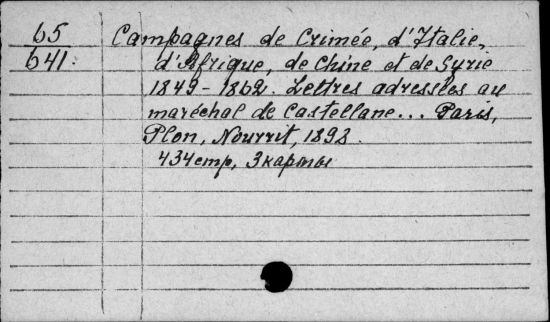 65 Campagnes de Crimée, d'Italie,
641. d'Afrique, de Chine et de Syrie
1849-1862. Lettres adressées au
maréchal de Castellane... Paris,
Plon, Nourrit, 1898.
434стр, 3 карты